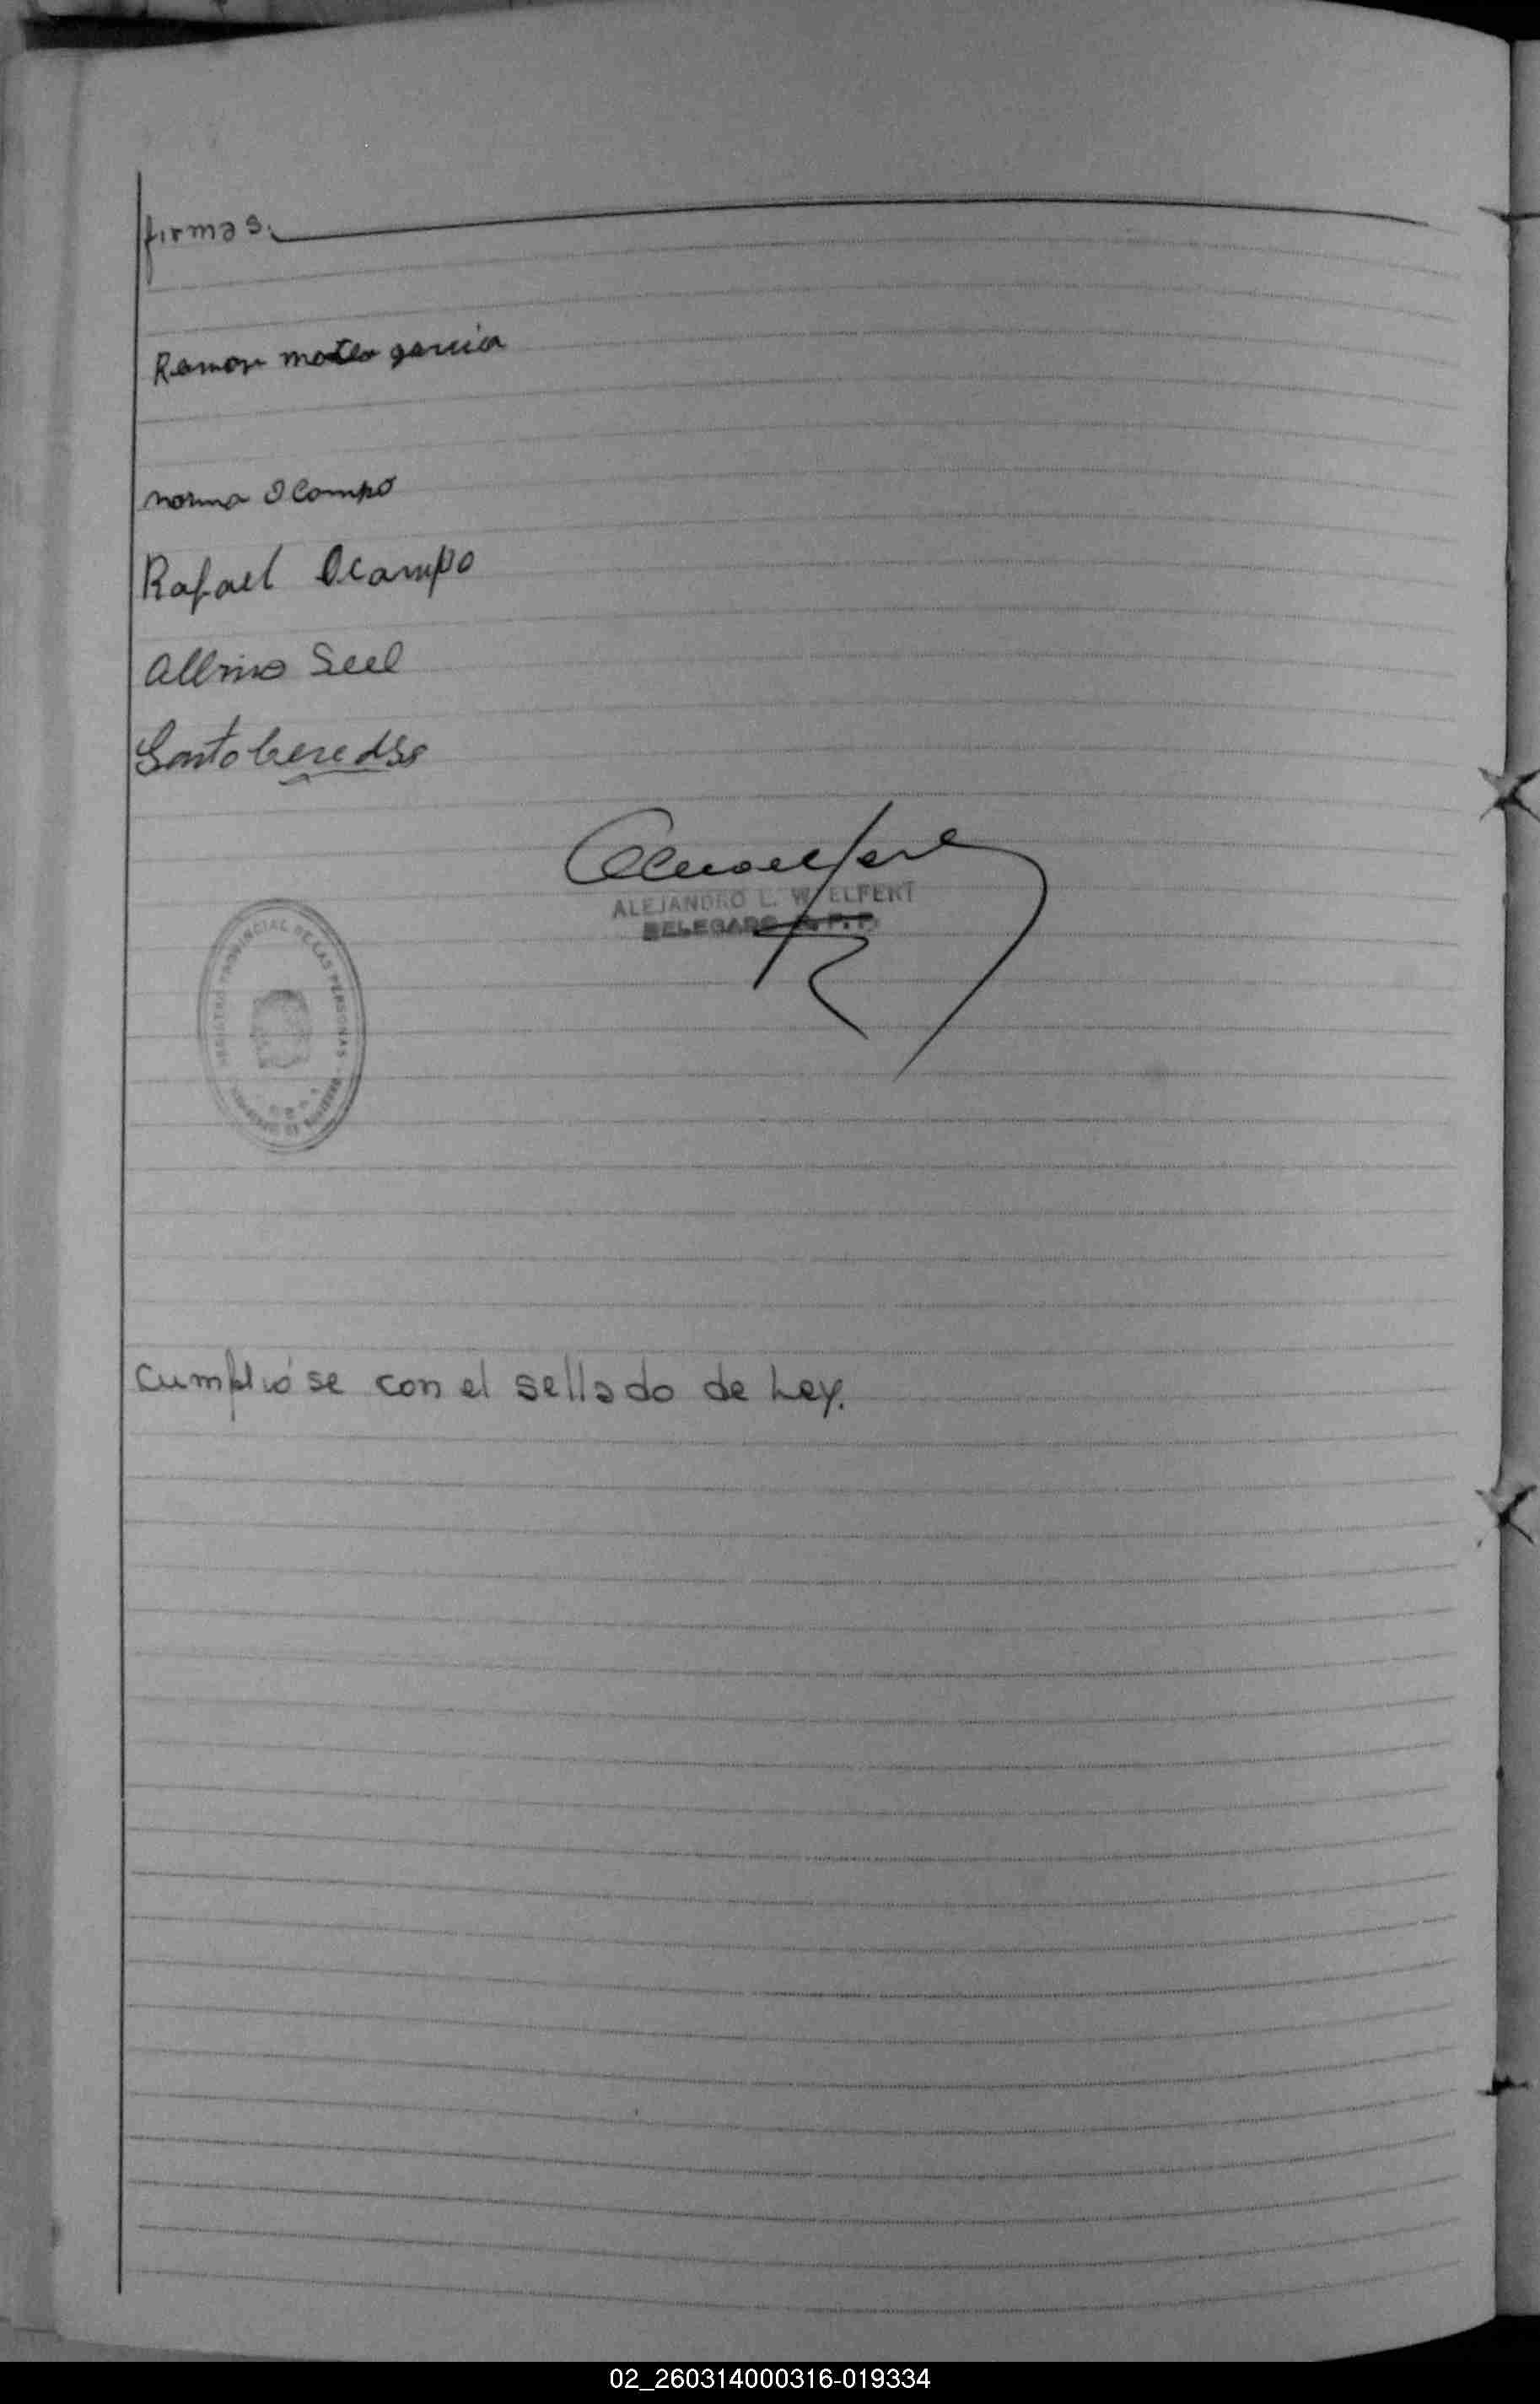 firmas.
Ramon mateo garcia
norma Ocampo
Rafael Ocampo
Albino
Santo
ALEJANDRO L. W. ELFERT
DELEGADO R. P. P.
REGISTRO PROVINCIAL DE LAS PERSONAS
Cumplióse con el sellado de Ley.
02_260314000316-019334